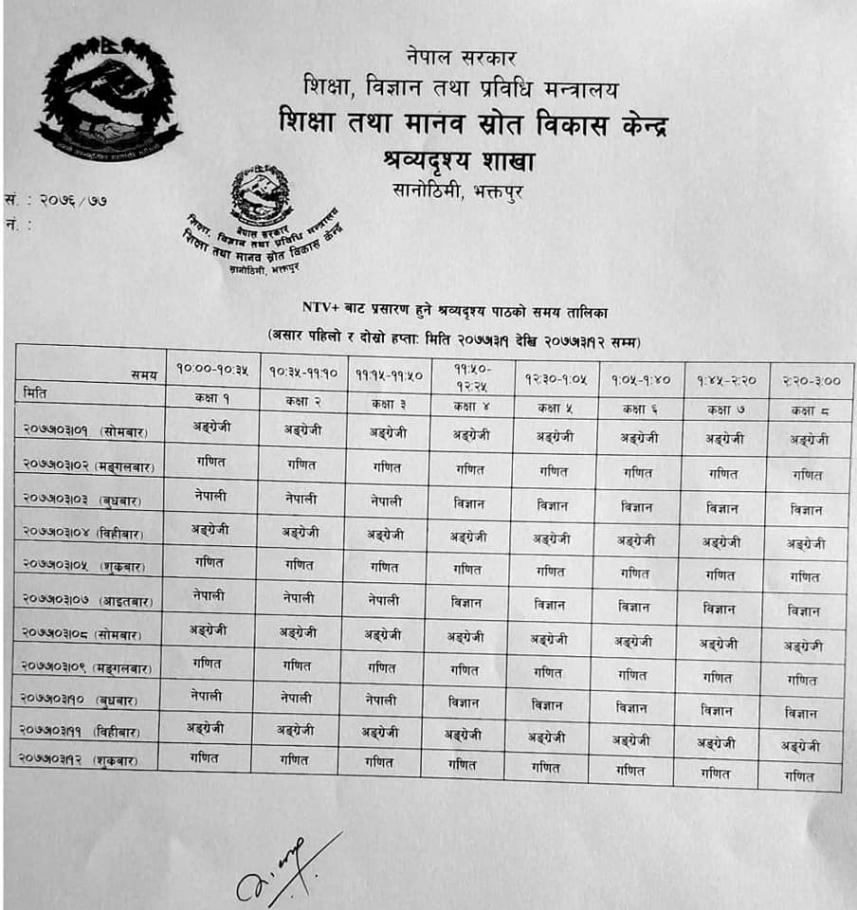 नेपाल सरकार
शिक्षा, विज्ञान तथा प्रविधि मन्त्रालय
शिक्षा तथा मानव स्रोत विकास केन्द्र
श्रव्यदृश्य शाखा
सानोठिमी, भक्तपुर
सं. : २०७६/७७
नं. :
नेपाल सरकार
शिक्षा, विज्ञान तथा प्रविधि मन्त्रालय
शिक्षा तथा मानव स्रोत विकास केन्द्र
सानोठिमी, भक्तपुर
NTV+ बाट प्रसारण हुने श्रव्यदृश्य पाठको समय तालिका
(असार पहिलो र दोस्रो हप्ता: मिति २०७७।३।१ देखि २०७७।३।१२ सम्म)
समय १०:००-१०:३५ १०:३५-११:१० ११:१५-११:५० ११:५०-१२:२५ १२:३०-१:०५ १:०५-१:४० १:४५-२:२० २:२०-३:००
मिति कक्षा १ कक्षा २ कक्षा ३ कक्षा ४ कक्षा ५ कक्षा ६ कक्षा ७ कक्षा ८
२०७७।०३।०१ (सोमबार) अङ्ग्रेजी अङ्ग्रेजी अङ्ग्रेजी अङ्ग्रेजी अङ्ग्रेजी अङ्ग्रेजी अङ्ग्रेजी अङ्ग्रेजी
२०७७।०३।०२ (मङ्गलबार) गणित गणित गणित गणित गणित गणित गणित गणित
२०७७।०३।०३ (बुधबार) नेपाली नेपाली नेपाली विज्ञान विज्ञान विज्ञान विज्ञान विज्ञान
२०७७।०३।०४ (विहीबार) अङ्ग्रेजी अङ्ग्रेजी अङ्ग्रेजी अङ्ग्रेजी अङ्ग्रेजी अङ्ग्रेजी अङ्ग्रेजी अङ्ग्रेजी
२०७७।०३।०५ (शुक्रबार) गणित गणित गणित गणित गणित गणित गणित गणित
२०७७।०३।०७ (आइतबार) नेपाली नेपाली नेपाली विज्ञान विज्ञान विज्ञान विज्ञान विज्ञान
२०७७।०३।०८ (सोमबार) अङ्ग्रेजी अङ्ग्रेजी अङ्ग्रेजी अङ्ग्रेजी अङ्ग्रेजी अङ्ग्रेजी अङ्ग्रेजी अङ्ग्रेजी
२०७७।०३।०९ (मङ्गलबार) गणित गणित गणित गणित गणित गणित गणित गणित
२०७७।०३।१० (बुधबार) नेपाली नेपाली नेपाली विज्ञान विज्ञान विज्ञान विज्ञान विज्ञान
२०७७।०३।११ (विहीबार) अङ्ग्रेजी अङ्ग्रेजी अङ्ग्रेजी अङ्ग्रेजी अङ्ग्रेजी अङ्ग्रेजी अङ्ग्रेजी अङ्ग्रेजी
२०७७।०३।१२ (शुक्रबार) गणित गणित गणित गणित गणित गणित गणित गणित